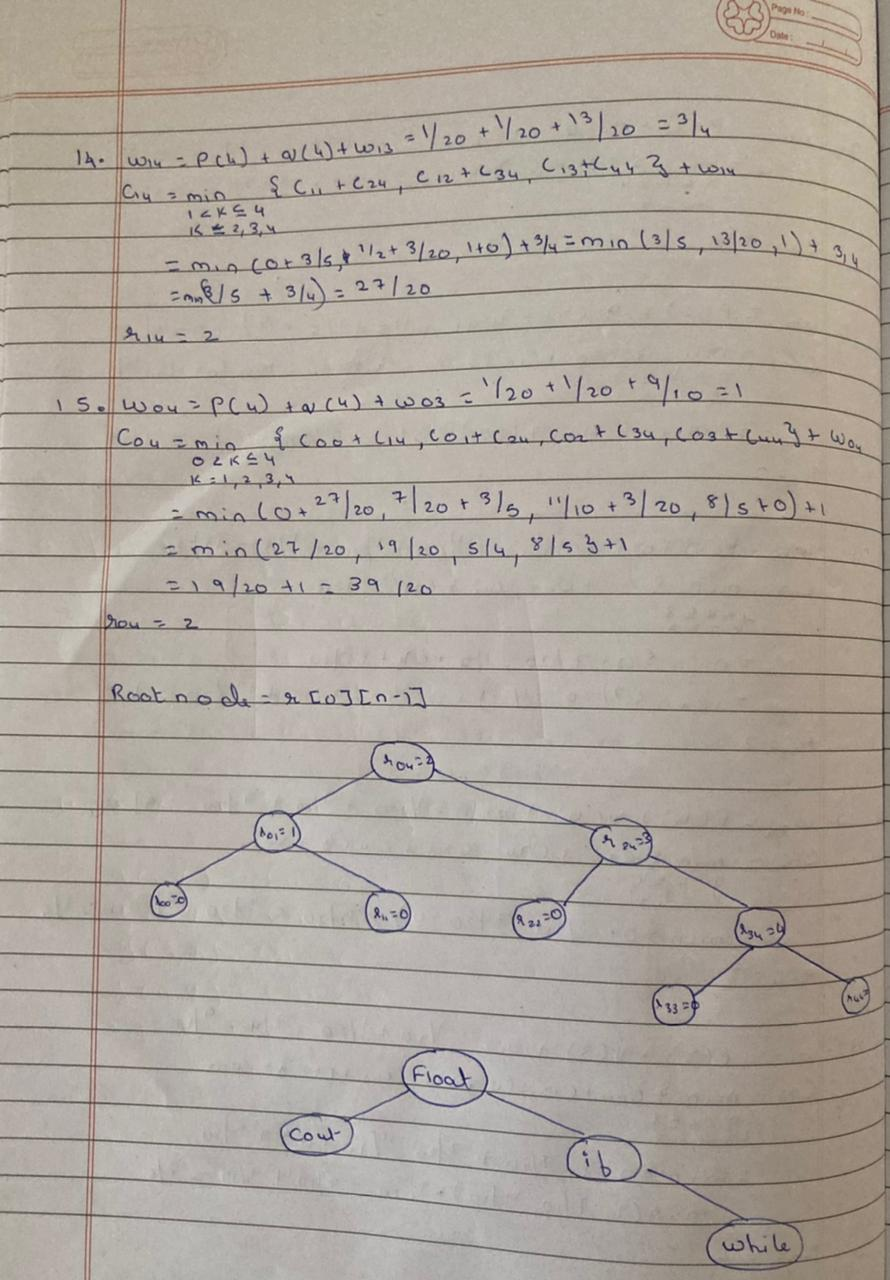 Page No:
Date:
14. w14 = P(4) + q(4) + w13 = 1/20 + 1/20 + 13/20 = 3/4
C14 = min { C11 + C24, C12 + C34, C13 + C44 } + w14
1 < K ≤ 4
K = 2,3,4
= min (0 + 3/5, 1/2 + 3/20, 1+0) + 3/4 = min (3/5, 13/20, 1) + 3/4
= min(3/5 + 3/4) = 27/20
r14 = 2
15. w04 = P(4) + q(4) + w03 = 1/20 + 1/20 + 9/10 = 1
C04 = min { C00 + C14, C01 + C24, C02 + C34, C03 + C44 } + w04
0 < K ≤ 4
K = 1,2,3,4
= min (0 + 27/20, 7/20 + 3/5, 11/10 + 3/20, 8/5 + 0) + 1
= min (27/20, 19/20, 5/4, 8/5 } + 1
= 19/20 + 1 = 39/20
r04 = 2
Root node = r [0][n-1]
r04=2
r01=1
r24=3
r00=0
r11=0
r22=0
r34=4
r33=0
r44=
Float
Cout
if
while